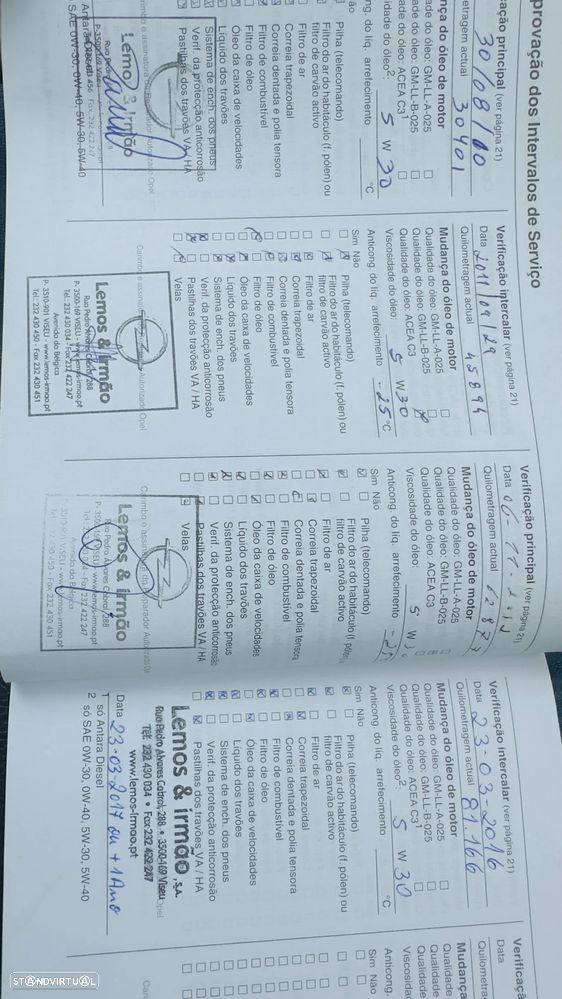 provação dos Intervalos de Serviço
cação principal (ver página 21)
30/08/10
metragem actual 30401
nça do óleo de motor
de do óleo: GM-LL-A-025
de do óleo: GM-LL-B-025
de do óleo: ACEA C3¹
sidade do óleo²: 5 W 30
ng. do líq. arrefecimento °C
ão
Pilha (telecomando)
Filtro do ar do habitáculo (f. pólen) ou
filtro de carvão activo
Filtro de ar
Correia trapezoidal
Correia dentada e polia tensora
Filtro de combustível
Filtro de óleo
Óleo da caixa de velocidades
Líquido dos travões
Sistema de ench. dos pneus
Verif. da protecção anticorrosão
Pastilhas dos travões VA / HA
Carimbo e assinatura Autorizado Opel
Lemos & Irmão
SAE 0W-30, 0W-40, 5W-30, 5W-40
Verificação intercalar (ver página 21)
Data 2011/09/29
Quilometragem actual 45894
Mudança do óleo de motor
Qualidade do óleo: GM-LL-A-025
Qualidade do óleo: GM-LL-B-025
Qualidade do óleo: ACEA C3
Viscosidade do óleo: 5 W 30
Anticong. do líq. arrefecimento -25 °C
Sim Não
Pilha (telecomando)
Filtro do ar do habitáculo (f. pólen) ou
filtro de carvão activo
Filtro de ar
Correia trapezoidal
Correia dentada e polia tensora
Filtro de combustível
Filtro de óleo
Óleo da caixa de velocidades
Líquido dos travões
Sistema de ench. dos pneus
Verif. da protecção anticorrosão
Pastilhas dos travões VA / HA
Velas
Lemos & Irmão
Rua Pedro Álvares Cabral, 288
P. 3500-169 VISEU - www.lemos-irmao.pt
Tel. 232 430 034 - Fax 232 422 247
Avenida da Bélgica
P. 3510-991 VISEU - www.lemos-irmao.pt
Tel. 232 430 450 - Fax 232 430 451
Verificação principal (ver página 21)
Data
Quilometragem actual
Mudança do óleo de motor
Qualidade do óleo: GM-LL-A-025
Qualidade do óleo: GM-LL-B-025
Qualidade do óleo: ACEA C3
Viscosidade do óleo: 5 W
Anticong. do líq. arrefecimento
Sim Não
Pilha (telecomando)
Filtro do ar do habitáculo (f. pólen
filtro de carvão activo
Filtro de ar
Correia trapezoidal
Correia dentada e polia tensora
Filtro de combustível
Filtro de óleo
Óleo da caixa de velocidades
Líquido dos travões
Sistema de ench. dos pneus
Verif. da protecção anticorrosão
Pastilhas dos travões VA / HA
Velas
Lemos & irmão
Rua Pedro Álvares Cabral, 288
Verificação intercalar (ver página 21)
Data 23-03-2016
Quilometragem actual 81.166
Mudança do óleo de motor
Qualidade do óleo: GM-LL-A-025
Qualidade do óleo: GM-LL-B-025
Qualidade do óleo: ACEA C3¹
Viscosidade do óleo²: 5 W 30
Anticong. do líq. arrefecimento °C
Sim Não
Pilha (telecomando)
Filtro do ar do habitáculo (f. pólen) ou
filtro de carvão activo
Filtro de ar
Correia trapezoidal
Correia dentada e polia tensora
Filtro de combustível
Filtro de óleo
Óleo da caixa de velocidades
Líquido dos travões
Sistema de ench. dos pneus
Verif. da protecção anticorrosão
Pastilhas dos travões VA / HA
Lemos & irmão, S.A.
Rua Pedro Álvares Cabral, 288 • 3500-169 Viseu
Tel: 232 430 034 • Fax: 232 422 247
www.lemos-irmao.pt
Data 23-03-2017 ou + 1 Ano
1 só Antara Diesel
2 só SAE 0W-30, 0W-40, 5W-30, 5W-40
Verificaç
Data
Quilometra
Mudança
Qualidade
Qualidade
Qualidade
Viscosidad
Anticong.
Sim Não
STANDVIRTUAL